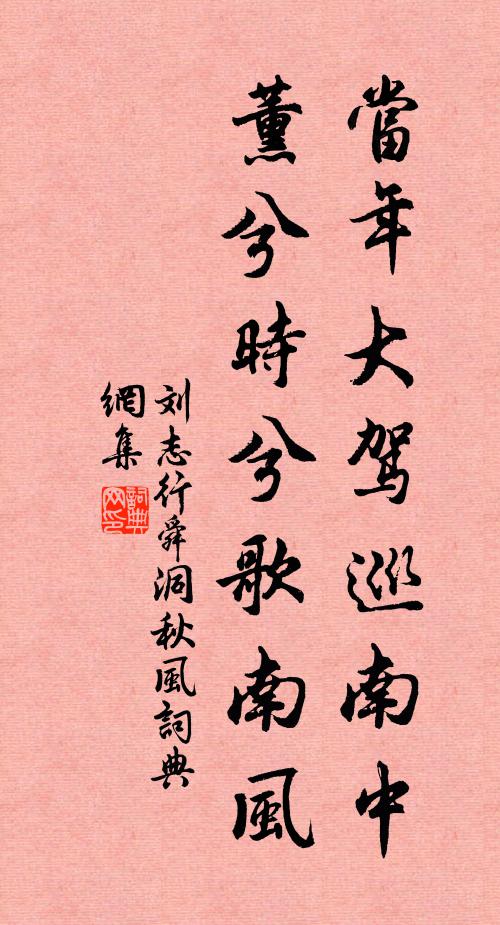 當年大駕巡南中
薰兮時兮歌南風
刘志行舜洞秋風詞典
網集
詞典
网印